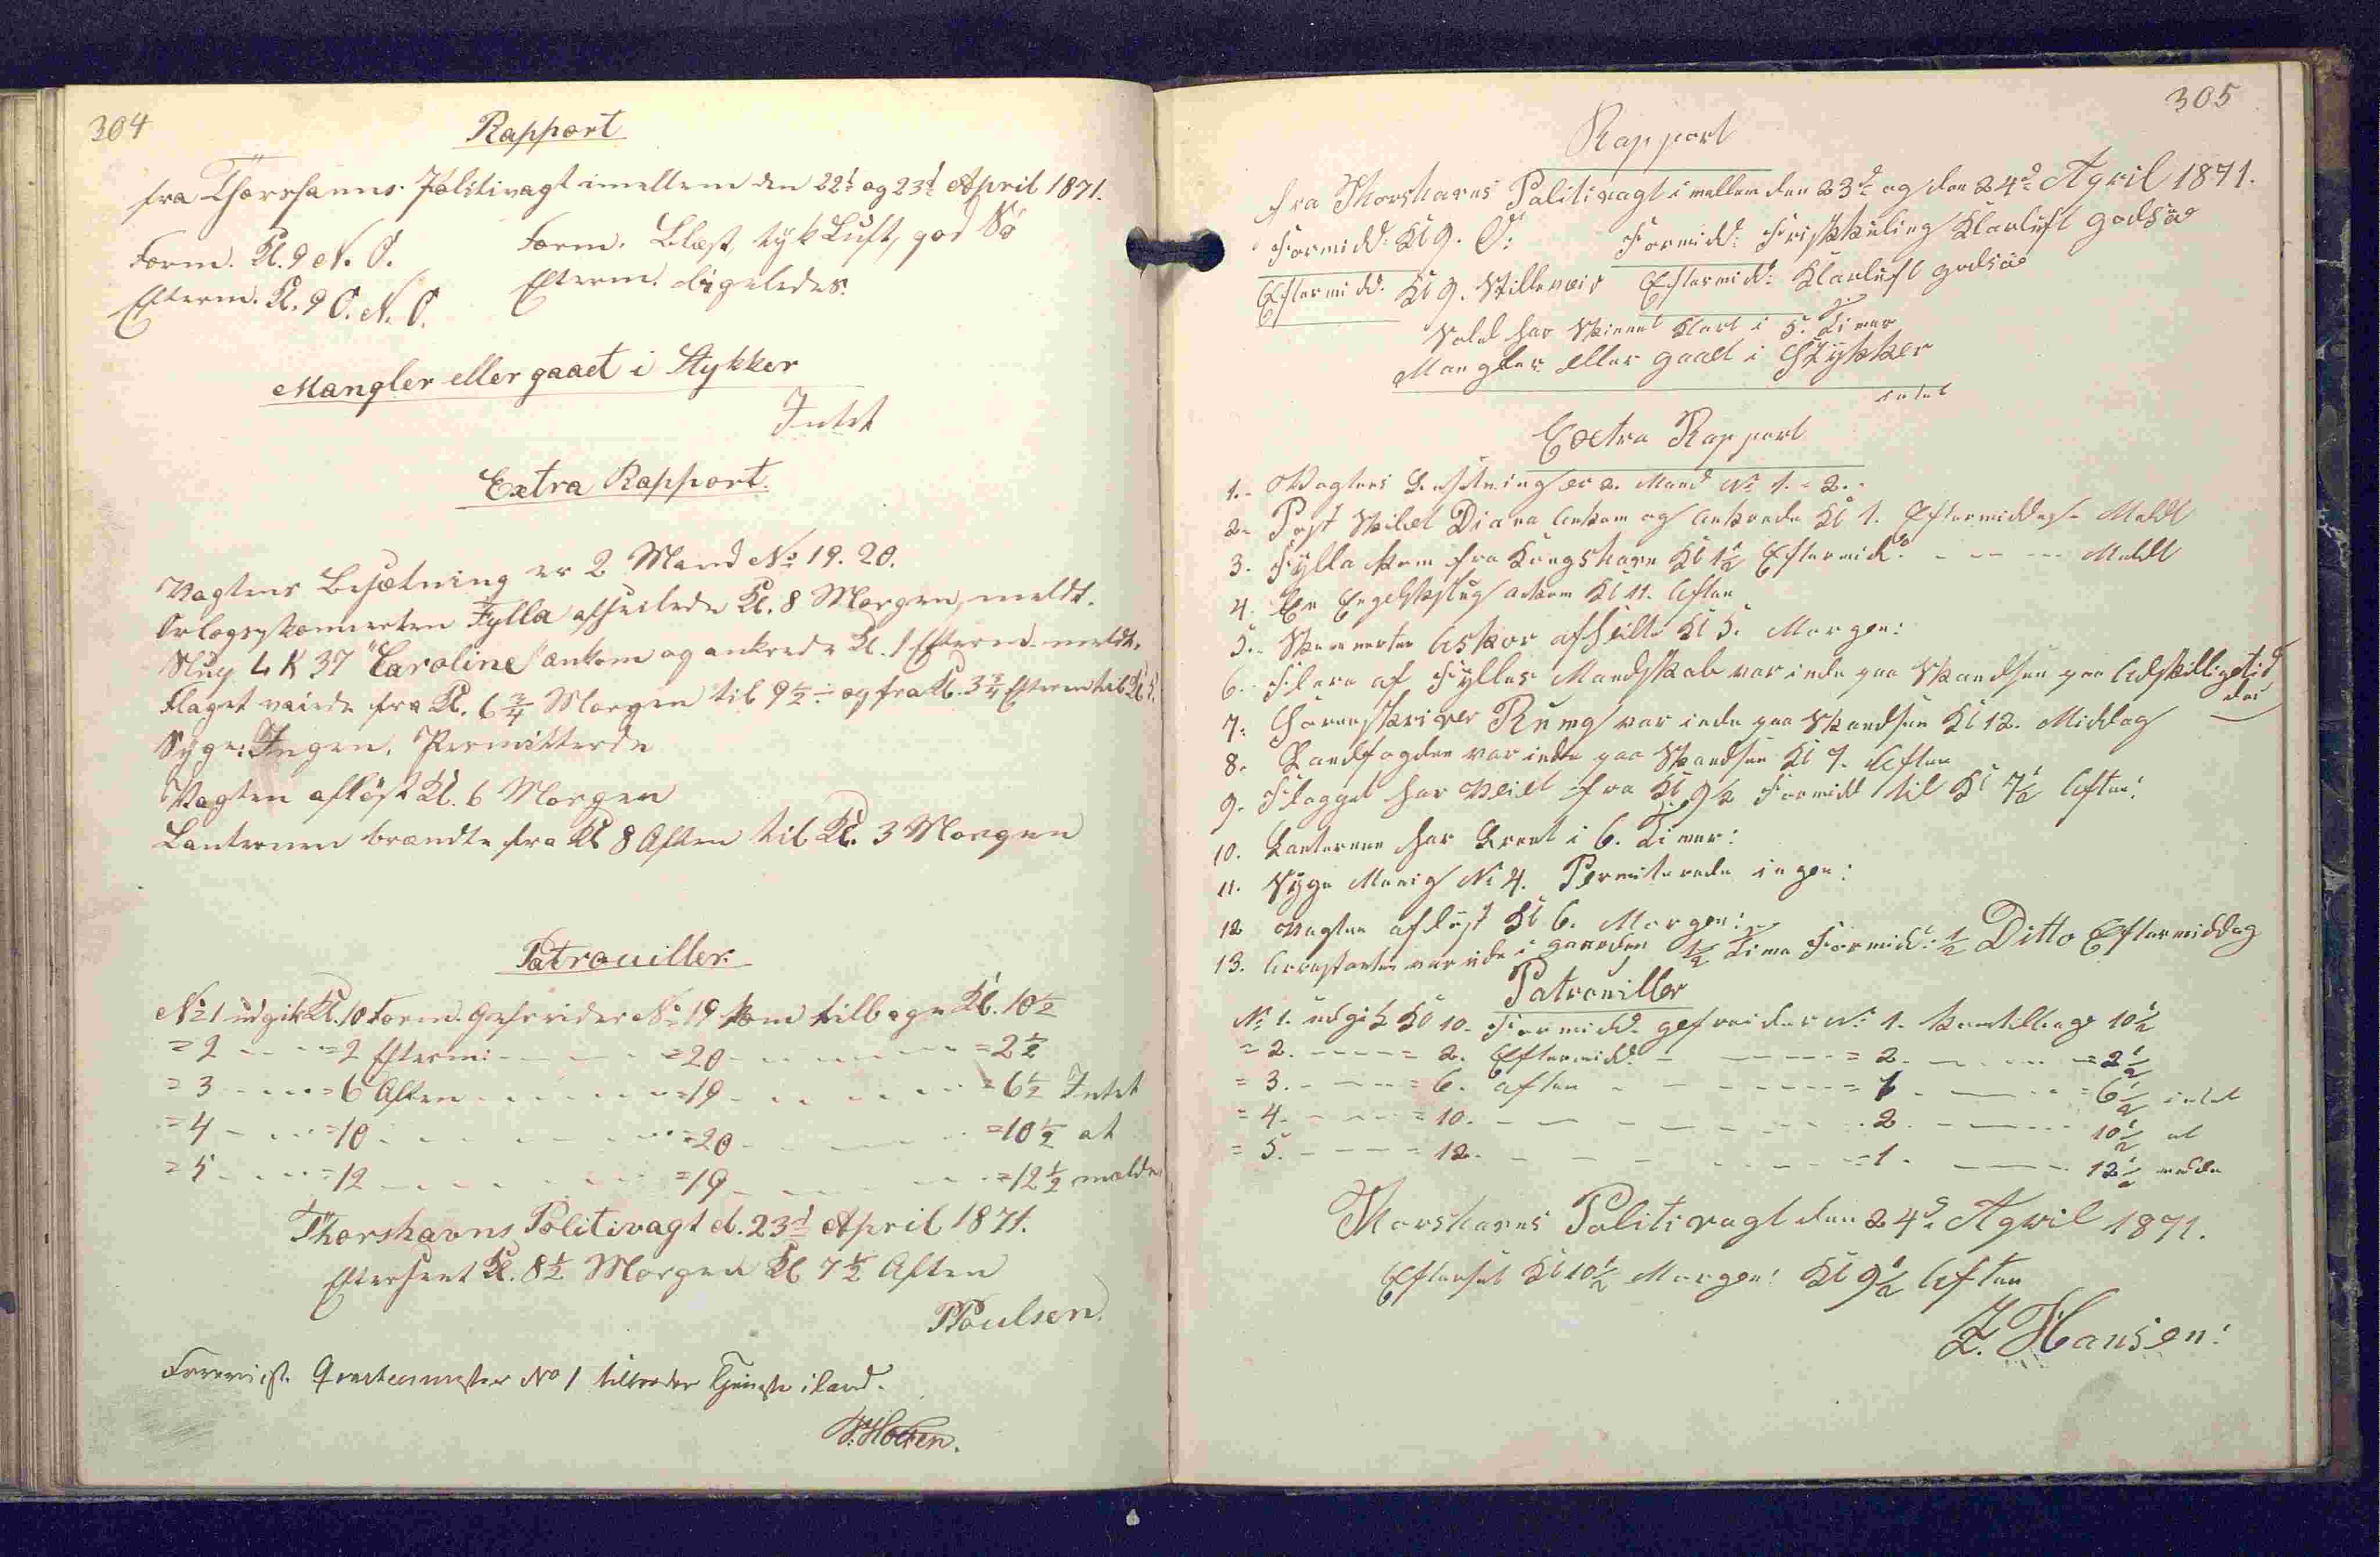 304
Rapport
fra Thorshavns Politivagt imellem den 22d og 23d April 1871.
Form. Kl. 9 N. O. Form. Blæst, tyk Luft, god Sö
Efterm. Kl. 9 O. N. O. Efterm. ligeledes.
Mangler eller gaaet i Stykker
Intet
Extra Rapport.
Vagtens Besætning er 2 Mand No 19. 20.
Orlogsskonnerten Fylla afseilede Kl. 8 Morgen, meldt.
Slup L K 37 "Caroline" ankom og ankrede Kl. 1 Efterm. meldt.
Flaget vaiede fra Kl. 6 3/4 Morgen til 9 1/2 og fra Kl. 3 3/4 Efterm til Kl
Syge: Ingen, Permitterede
Vagten aflöst Kl. 6 Morgen
Lanternen brændte fra Kl 8 Aften til Kl. 3 Morgen
Patrouiller.
No 1 udgik Kl. 10 Form. Gefreider No 19 kom tilbage Kl. 10 1/2
= 2 - - - = 2 Efterm: - - - = 20 - - - = 2 1/2
= 3 - - - = 6 Aften - - - = 19 - - - = 6 1/2 Intet
= 4 - - - = 10 - - - = 20 - - - = 10 1/2 at
= 5 - - - = 12 - - - = 19 - - - = 12 1/2 melde
Thorshavns Politivagt d. 23d April 1871.
Efterseet Kl. 8 1/2 Morgen Kl 7 1/2 Aften
Poulsen.
No 1 tilræder Tjeneste iland.
305
Rapport
fra Thorshavns Politivagt imellem den 23d og den 24d April 1871.
Formidd: Kl 9. O: Formidd: Friskkuling Klarluft godsö
Eftermidd: Kl 9. Stilleveir Eftermidd: Klarluft godsö
Solel har Skinnet Klart i 5. Timer
Mangler eller gaael i Stykker
intet
Extra Rapport
1. Vagtens Besetning er 2. Mand No 1. = 2. -
2. Post Skibet Diana Ankom og Ankrede Kl 1. Eftermiddag - Meldt
3. Fylla kom fra Kongshavn Kl 1 1/2 Eftermidd - - - Meldt
4. En Engelskslup ankom Kl 11. Aften
5. Skonnerten afseilte Kl 5. Morgen:
6. Flere af Fyllas Mandskab var inde paa Skandsen paa Adskilligetid
der
7. Sorenskriver var inde paa Skandsen Kl 12. Middag
8. Landfogden var inde paa Skandsen Kl 7. Aften
9. Flagget har Veiet fra Kl 9 1/2 Formidd til Kl 7 1/2 Aften:
10. Lanternen har Brent i 6. Timer:
11. Syge Menig No 4. Permiterede ingen:
12 Vagten aflöst Kl 6. Morgen:
13. Arrestanten var ude i gaarden 1/2 Time Formidd: 1/2 Ditto Eftermiddag
Patrouiller
No 1. udgik Kl 10. Formidd. gefreider No 1. komtilbage 10 1/2
= 2. - - - = 2. Eftermidd - - - = 2 - - - = 2 1/2
= 3. - - - = 6. aften - - - = 1 - - - = 6 1/2 intet
= 4. - - - = 10. - - - 2 - - - 10 1/2 at
= 5. - - - = 12. - - - = 1. - - - 12 1/2 melde
Thorshavns Politivagt den 24d April 1871.
Efterset Kl 10 1/2 Morgen: Kl 9 1/2 Aften
Z. Hansen: